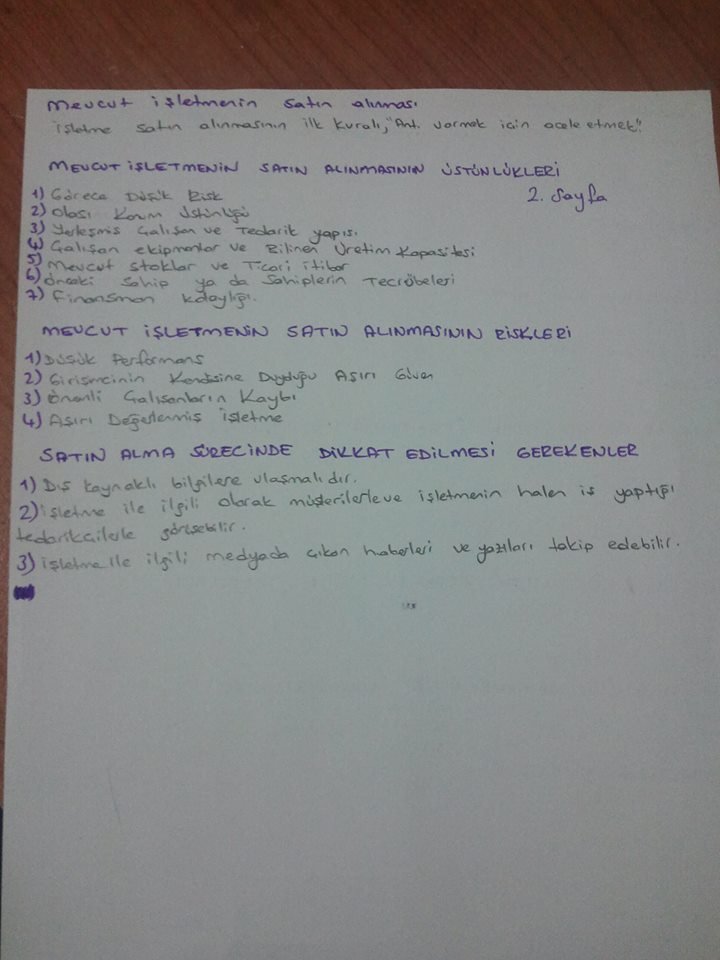 Mevcut işletmenin satın alınması
işletme satın alınmasının ilk kuralı, "Ani vermek için acele etmek".
MEVCUT İŞLETMENİN SATIN ALINMASININ ÜSTÜNLÜKLERİ
2. Sayfa
1) Görece Düşük Risk
2) Olası Konum Üstünlüğü
3) Yerleşmiş Çalışan ve Tedarik yapısı
4) Çalışan ekipmanlar ve Bilinen Üretim Kapasitesi
5) Mevcut stoklar ve Ticari itibar
6) Önceki Sahip ya da Sahiplerin Tecrübeleri
7) Finansman kolaylığı.
MEVCUT İŞLETMENİN SATIN ALINMASININ RİSKLERİ
1) Düşük Performans
2) Girişimcinin Kendisine Duyduğu Aşırı Güven
3) Önemli Çalışanların Kaybı
4) Aşırı Değerlenmiş İşletme
SATIN ALMA SÜRECİNDE DİKKAT EDİLMESİ GEREKENLER
1) Dış kaynaklı bilgilere ulaşmalıdır.
2) işletme ile ilgili olarak müşterilerle ve işletmenin halen iş yaptığı
tedarikçilerle görüşebilir.
3) işletme ile ilgili medyada çıkan haberleri ve yazıları takip edebilir.